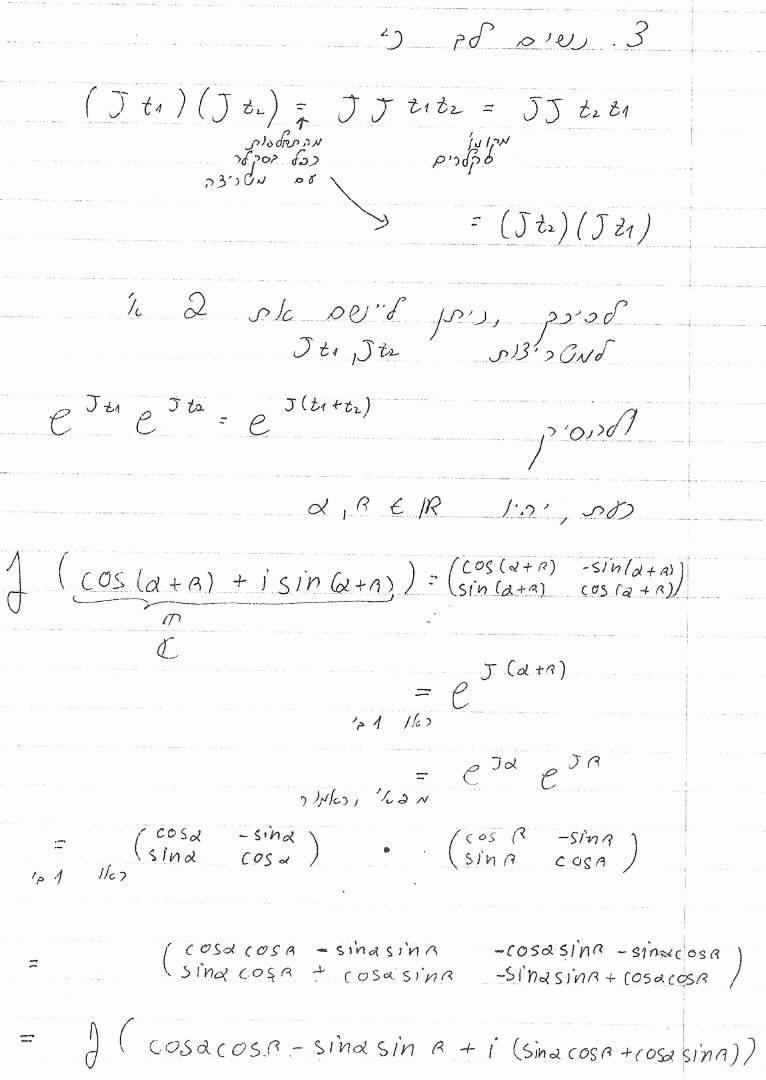 3. נשים לב כי
(J t1)(J t2) = J J t1t2 = JJ t2 t1
↑
מהתחלפות
כפל בסקלר
עם מטריצה
מקומו'
סקלרים
= (J t2)(J t1)
לפיכך, ניתן ליישם את 2 א'
למטריצות Jt1, Jt2
ולהסיק e^{Jt1} e^{Jt2} = e^{J(t1+t2)}
כעת, יהיו α, β ∈ ℝ
J (cos(α+β) + i sin(α+β)) = (cos(α+β) -sin(α+β)
sin(α+β) cos(α+β))
∈
ℂ
= e^{J(α+β)}
1 קו'
= e^{Jα} e^{Jβ}
= (cosα -sinα
sinα cosα) · (cosβ -sinβ
sinβ cosβ)
1 קו'
= (cosα cosβ - sinα sinβ -cosα sinβ - sinα cosβ
sinα cosβ + cosα sinβ -sinα sinβ + cosα cosβ)
= J (cosα cosβ - sinα sinβ + i (sinα cosβ + cosα sinβ))